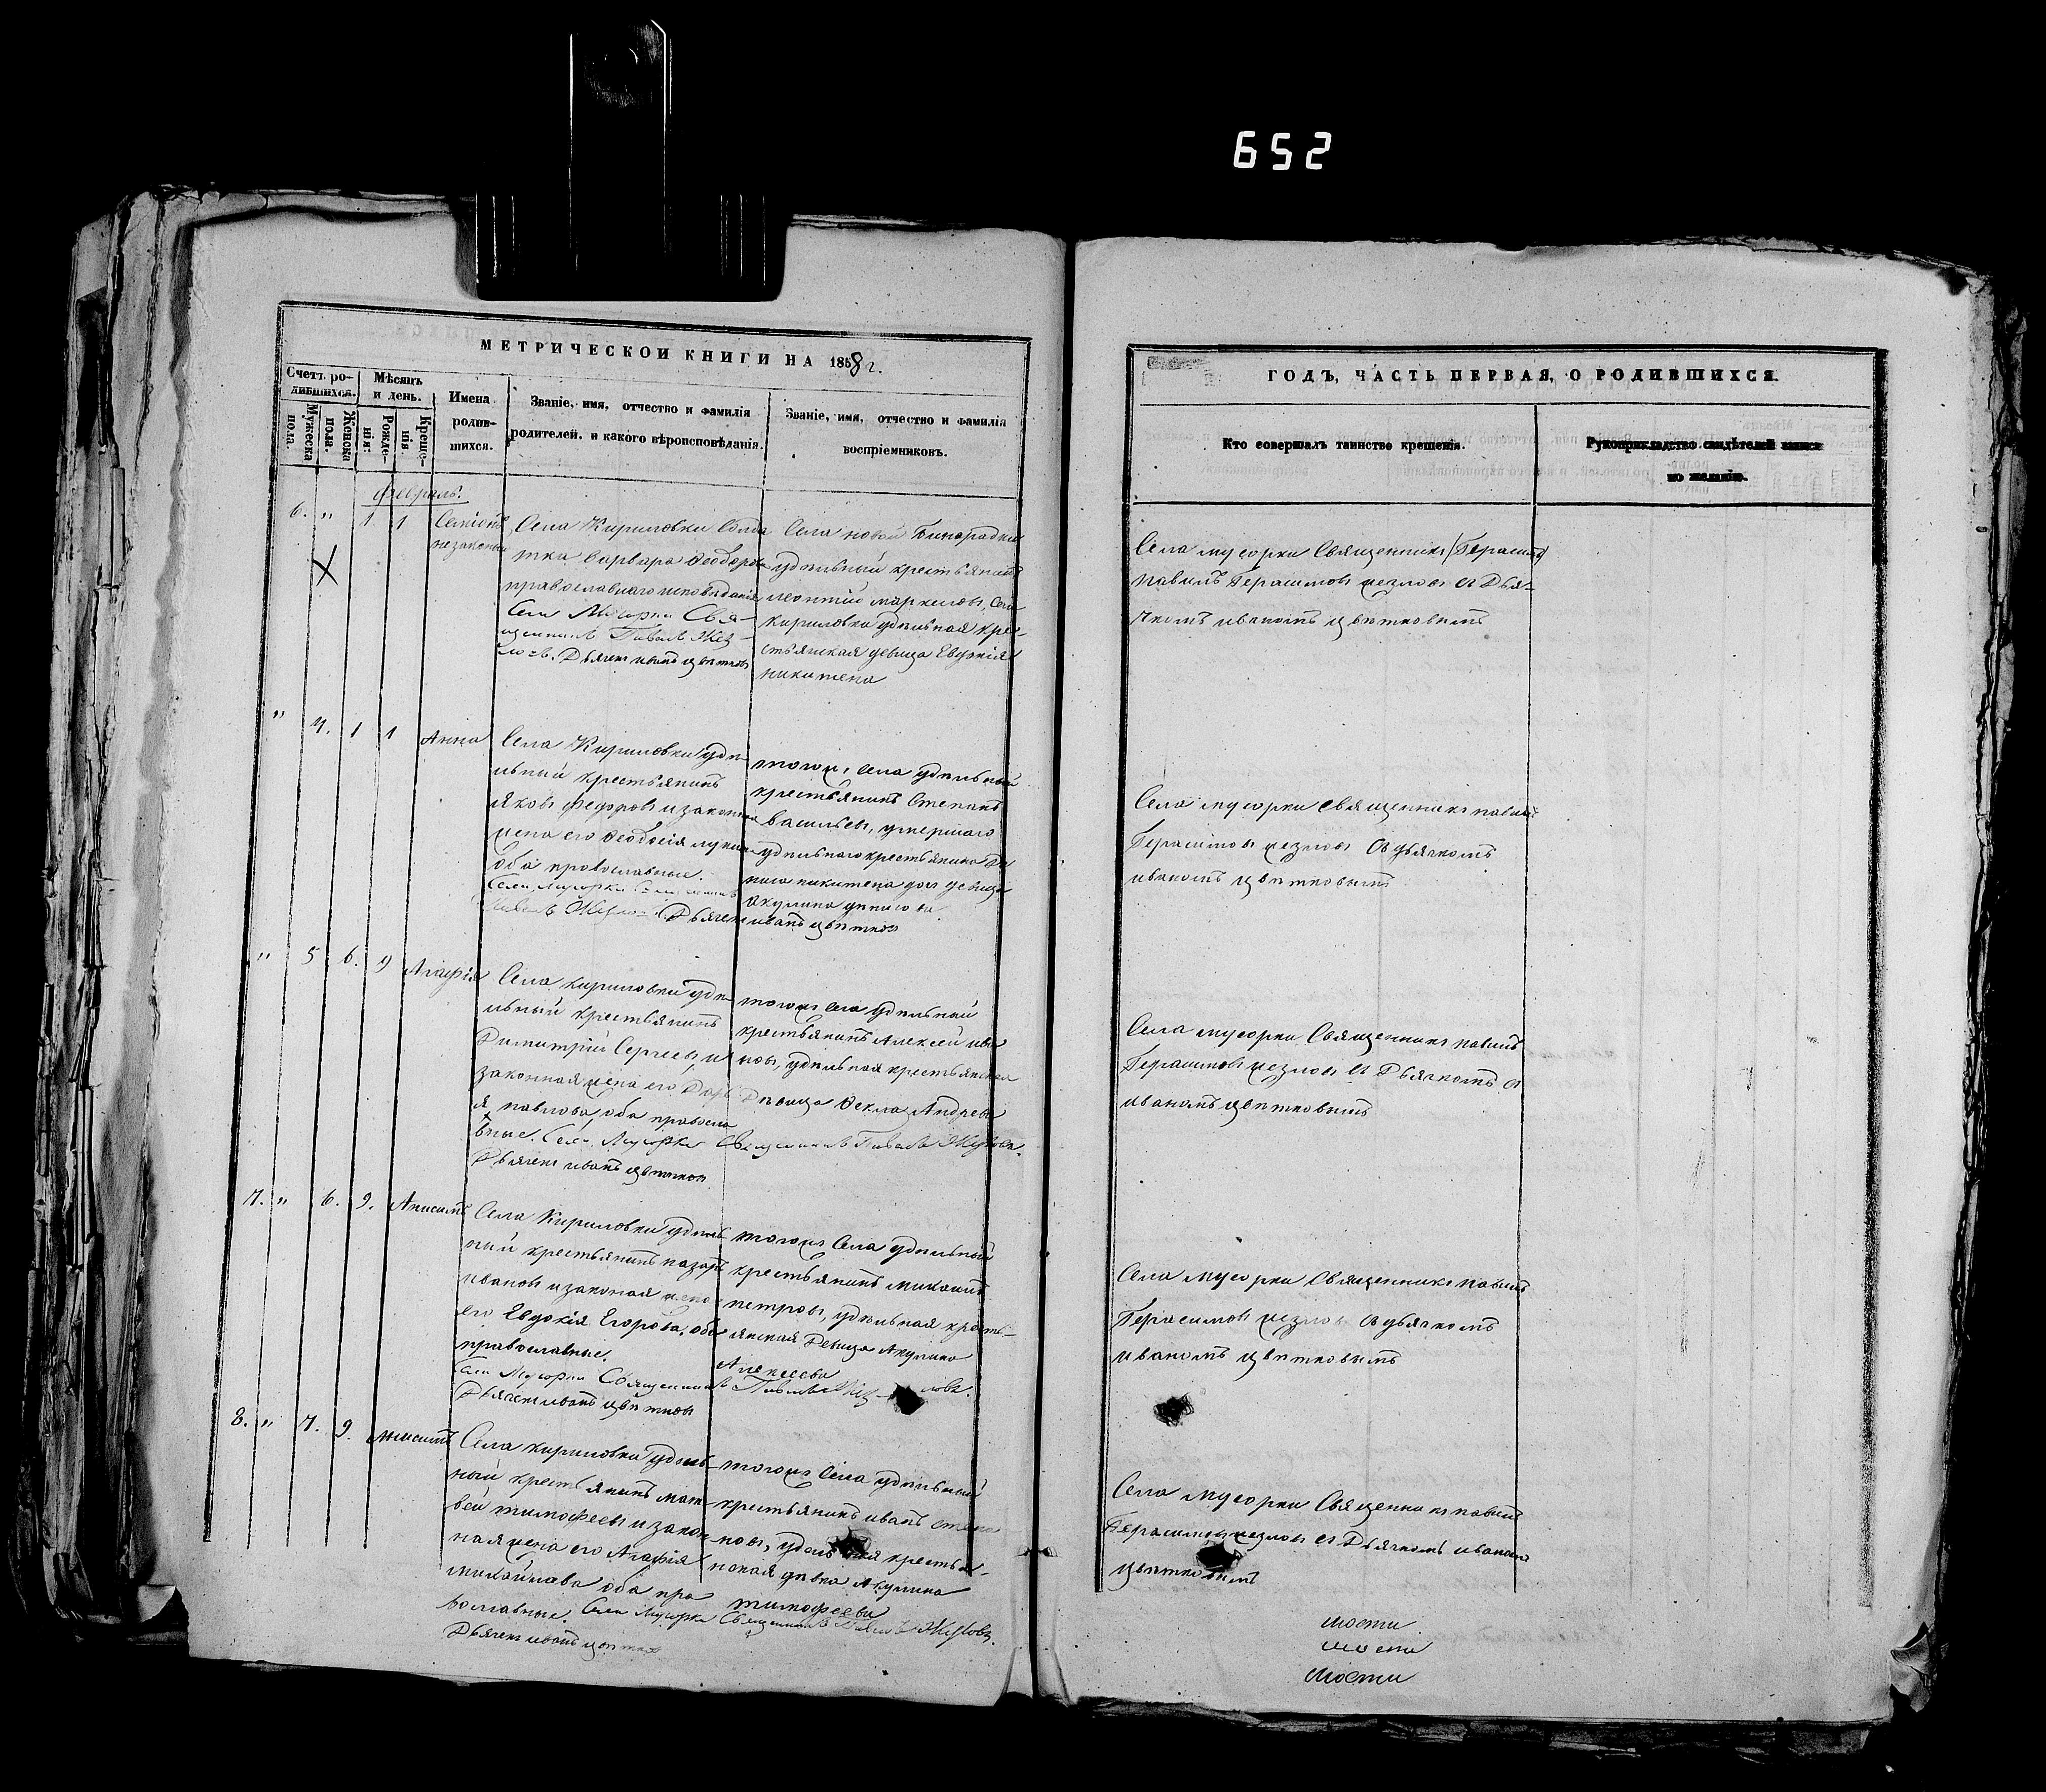 652
МЕТРИЧЕСКОЙ КНИГИ НА 1858 г.
Счетъ ро-
дившихся.
Мужеска
пола.
Женска
пола.
Мѣсяцъ
и день.
Рожде-
нія.
Креще-
нія.
Имена
родив-
шихся.
Званіе, имя, отчество и фамилія
родителей, и какого вѣроисповѣданія.
Званіе, имя, отчество и фамилія
воспріемниковъ.
февраль.
6. " 1 1
незаконн
Села Кириловки Солда
тка Варвара Ѳеодоро
православнаго исповѣданія
Села Мусорки Свя-
щенникъ Павелъ Жез-
ловъ. Дьячекъ иванъ цвѣтковъ
Села новой Бинорадки
удѣльный крестьянинъ
леонтій маркеловъ, Села
кириловки удѣльная кре-
стьянская девица Евдокія
никитена
" 4. 1 1
Анна
Села Кириловки удѣ
льный крестьянинъ
яковъ федоровъ и законная
жена его Ѳеодосія
оба православные.
Села Мусорки Священникъ
Павелъ Жезловъ Дьячекъ иванъ цвѣтковъ
тогожъ села удѣльный
крестьянинъ Степанъ
васильевъ, умершаго
удѣльнаго крестьянина
никитена дочь девица
Акулина
" 5 6. 9
Агафія
Села кириловки удѣ
льный крестьянинъ
Димитрій Сергеевъ и
законная жена его Дарь
я павлова, оба правосла
вные. Села Мусорки Священникъ Павелъ Жезловъ.
Дьячекъ иванъ цвѣтковъ
тогожъ села удѣльный
крестьянинъ Алексей ива
новъ, удѣльная крестьянская
Дѣвица Ѳекла Андреева
7. " 6. 9.
Анисимъ
Села Кириловки удѣль
ный крестьянинъ назаръ
ивановъ и законая жена
его Евдокія Егорова, оба
православные.
Села Мусорки Священникъ Павелъ Жезловъ.
Дьячекъ иванъ цвѣтковъ
тогожъ Села удѣльный
крестьянинъ михаилъ
петровъ, удѣльная кресть-
янская Девица Акулина
Алексеева
8. " 7. 9.
Анисимъ
Села кириловки удѣль
ный крестьянинъ мат-
вей тимофеевъ и закон
ная жена его Агафія
михайлова оба пра
вославные. Села Мусорки Священникъ Павелъ Жезловъ.
Дьячекъ иванъ цвѣтков
тогожъ Села удѣльный
крестьянинъ иванъ степа
новъ, удѣльная крестья-
нская дѣвка Акулина
тимофеева
ГОДЪ, ЧАСТЬ ПЕРВАЯ, О РОДИВШИХСЯ.
Кто совершалъ таинство крещенія.
Рукоприкладство свидѣтелей записи
по желанію.
Села мусорки Священникъ (Герасимъ)
павелъ Герасимовъ жезловъ съ Дья-
чкомъ иваномъ цвѣтковымъ
Села мусорки священникъ павелъ
Герасимовъ жезловъ съ дьячкомъ
иваномъ цвѣтковымъ
Села мусорки Священникъ павелъ
Герасимовъ жезловъ съ Дьячкомъ
иваномъ цвѣтковымъ
Села мусорки Священникъ павелъ
Герасимовъ жезловъ съ дьячкомъ
иваномъ цвѣтковымъ
Села мусорки Священникъ павелъ
Герасимовъ жезловъ съ Дьячкомъ иваномъ
цвѣтковымъ